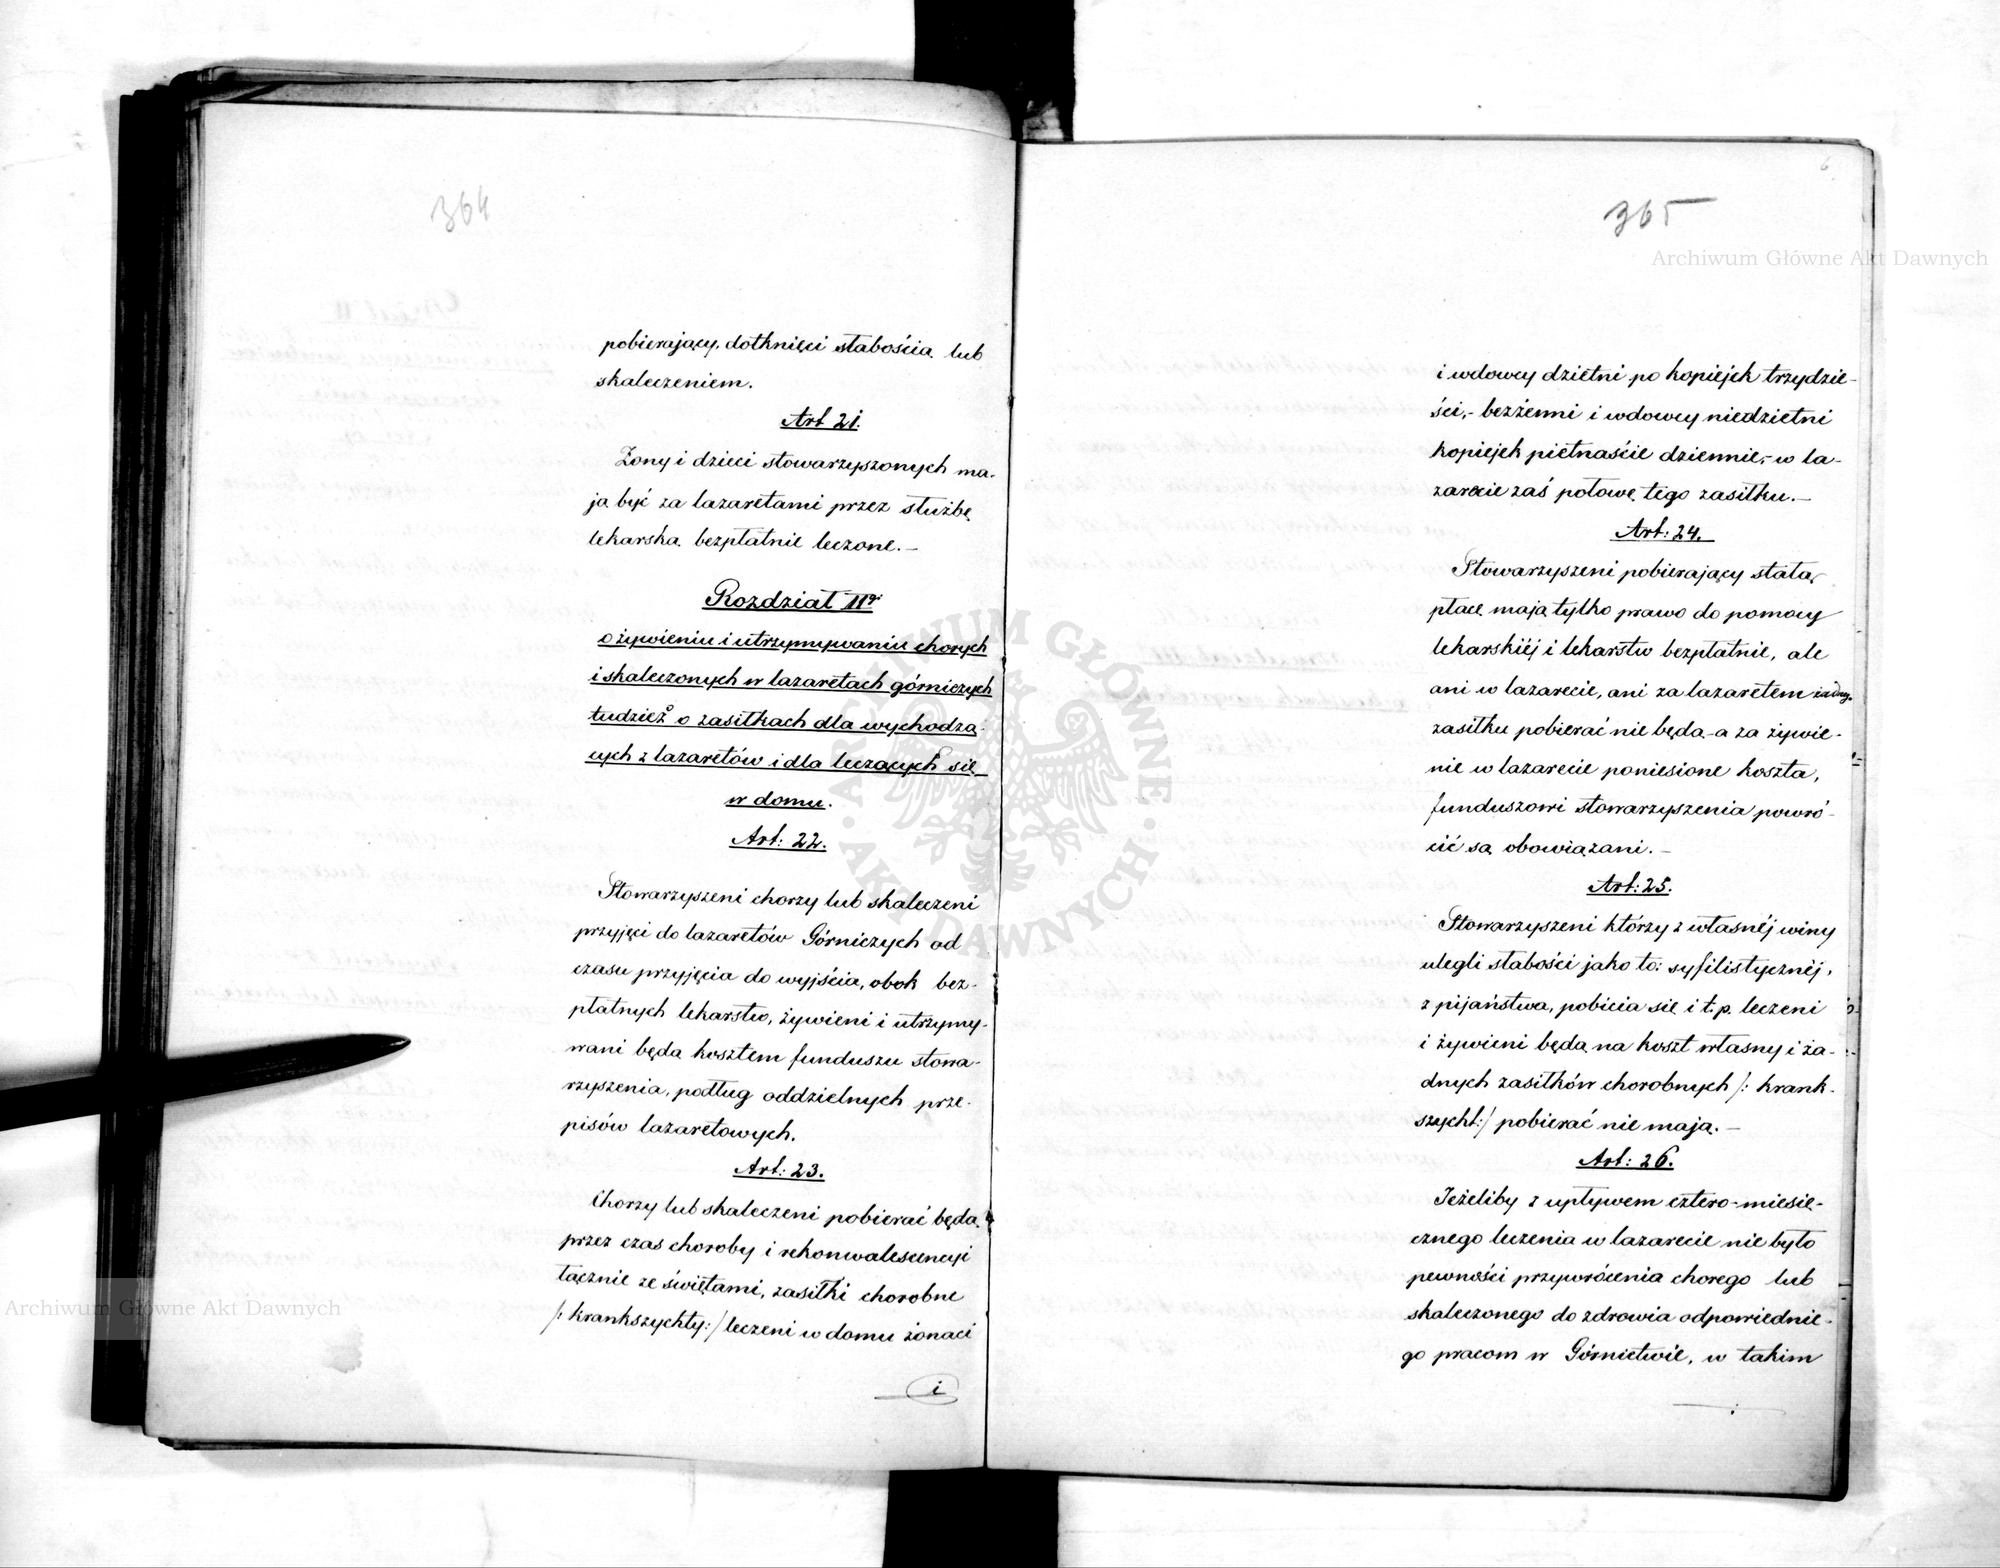 364
pobierający, dotknięci słabością lub
skaleczeniem.
Art 21.
Żony i dzieci stowarzyszonych ma-
ją być za lazaretami przez służbę
lekarską bezpłatnie leczone. –
Rozdział IIgi
o żywieniu i utrzymywaniu chorych
i skaleczonych w lazaretach górniczych
tudzież o zasiłkach dla wychodzą-
cych z lazaretów i dla leczących się
w domu.
Art: 22.
Stowarzyszeni chorzy lub skaleczeni
przyjęci do lazaretów Górniczych od
czasu przyjęcia do wyjścia, obok bez-
płatnych lekarstw, żywieni i utrzymy-
wani będą kosztem funduszu stowa-
rzyszenia, podług oddzielnych prze-
pisów lazaretowych.
Art: 23.
Chorzy lub skaleczeni pobierać będą
przez czas choroby i rekonwalescencyi
łącznie ze świętami, zasiłki chorobne
/: krankszychty:/ leczeni w domu żonaci
i
6
365
i wdowcy dzietni po kopiejek trzydzie-
ści, - bezżenni i wdowcy niedzietni
kopiejek pietnaście dziennie, - w la-
zarecie zaś połowę tego zasiłku. –
Art: 24.
Stowarzyszeni pobierający stałą
płacę mają tylko prawo do pomocy
lekarskiéj i lekarstw bezpłatnie, ale
ani w lazarecie, ani za lazaretem żadnego
zasiłku pobierać nie będą - a za żywie-
nie w lazarecie poniesione koszta,
funduszowi stowarzyszenia powró-
cić są obowiązani. –
Art: 25.
Stowarzyszeni którzy z własnéj winy
ulegli słabości jako to: syfilistycznéj,
z pijaństwa, pobicia się i t. p. leczeni
i żywieni będą na koszt własny i ża-
dnych zasiłków chorobnych /: krank-
szycht:/ pobierać nie mają. –
Art: 26.
Jeżeliby z upływem cztero-miesię-
cznego leczenia w lazarecie nie było
pewności przywrócenia chorego lub
skaleczonego do zdrowia odpowiednie-
go pracom w Górnictwie, w takim
Archiwum Główne Akt Dawnych
ARCHIWUM GŁÓWNE · AKT DAWNYCH ·
Archiwum Główne Akt Dawnych